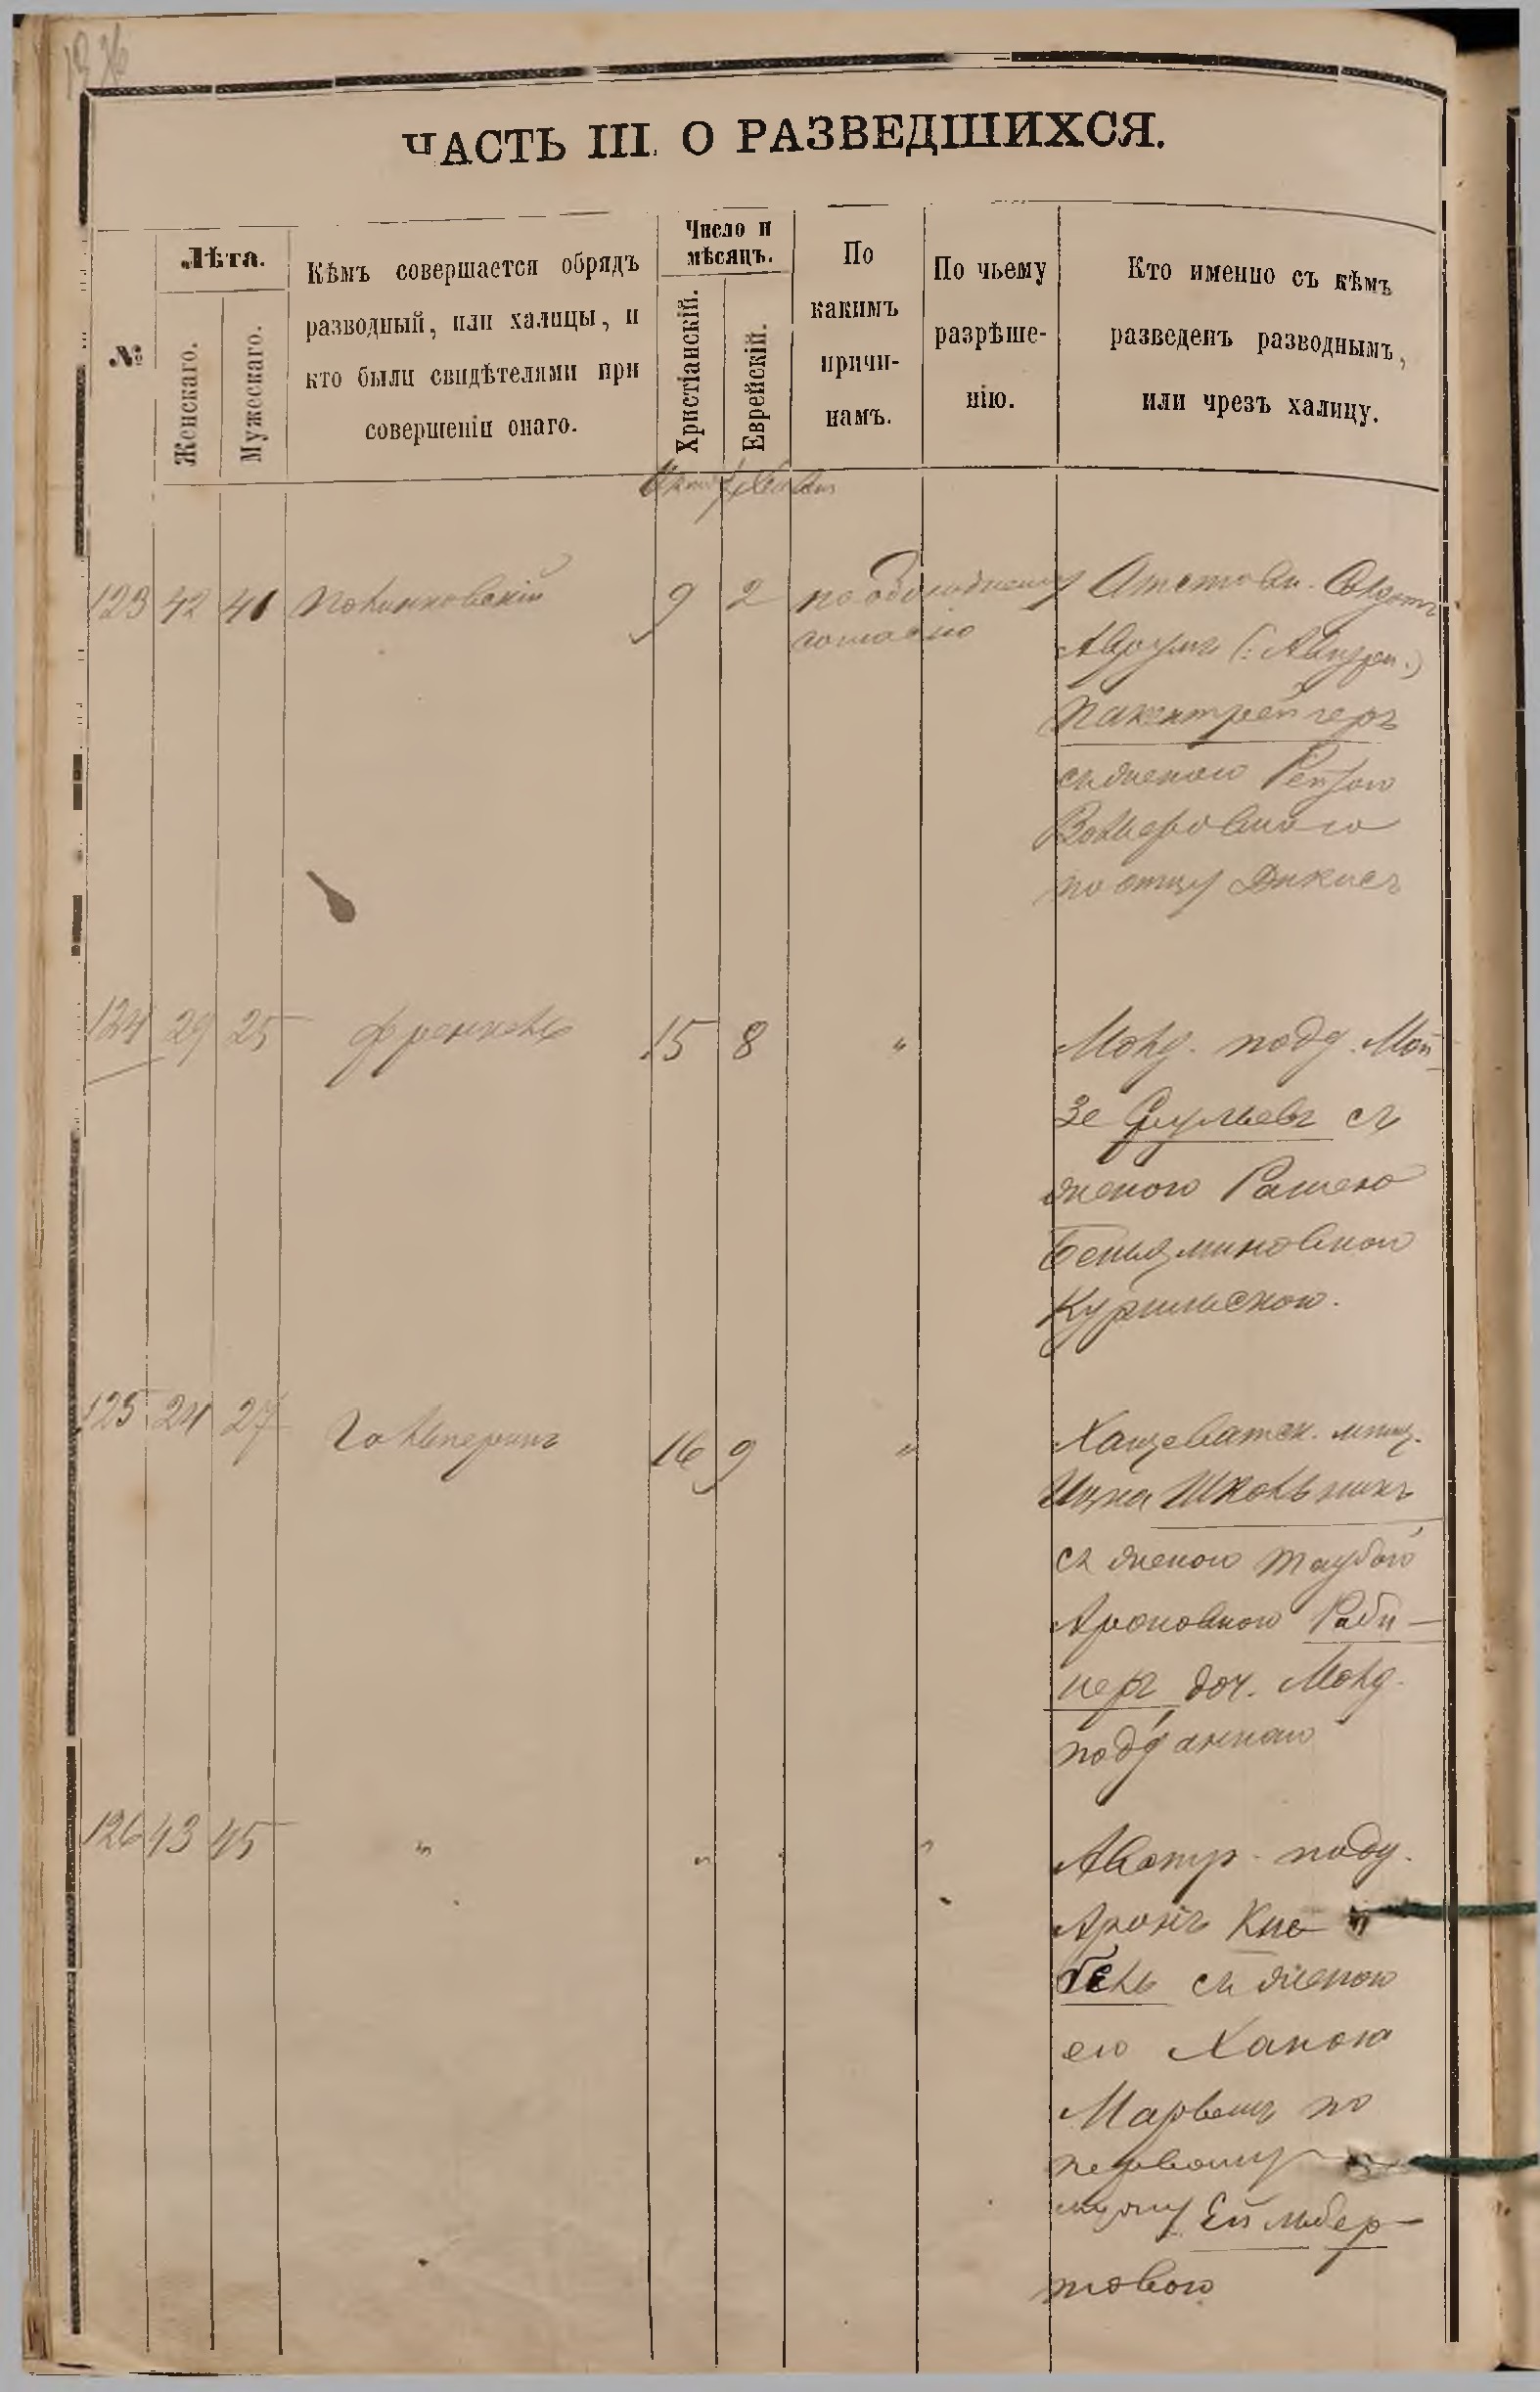 ЧАСТЬ III. О РАЗВЕДШИХСЯ.
№
Лѣта.
Женскаго.
Мужескаго.
Кѣмъ совершается обрядъ
разводный, или халицы, и
кто были свидѣтелями при
совершеніи онаго.
Число и
мѣсяцъ.
Христіанскій.
Еврейскій.
По
какимъ
причи-
намъ.
По чьему
разрѣше-
нію.
Кто именно съ кѣмъ
разведенъ разводнымъ,
или чрезъ халицу.
123 42 41 Полинковскій 9 2 по обоюдному
согласію
Отставн. Солдатъ
Аврумъ
Пакентрейгеръ
съ женою
Вольфовною
по отцу
124 29 25 Френкель 15 8 "
Молд. подд. Мой-
зе съ
женою
Беньяминовной
125 24 27 Гальперинъ 16 9 "
Хащеватск. мѣщ.
Ицка Школьникъ
съ женою Таубою
Ароновною Раби-
неръ доч. Молд.
подданнаго
126 43 45 " " "
Австр. подд.
Аронъ Кне
бель съ женою
его Ханою
по
первому
мужу Ейльбер-
товою